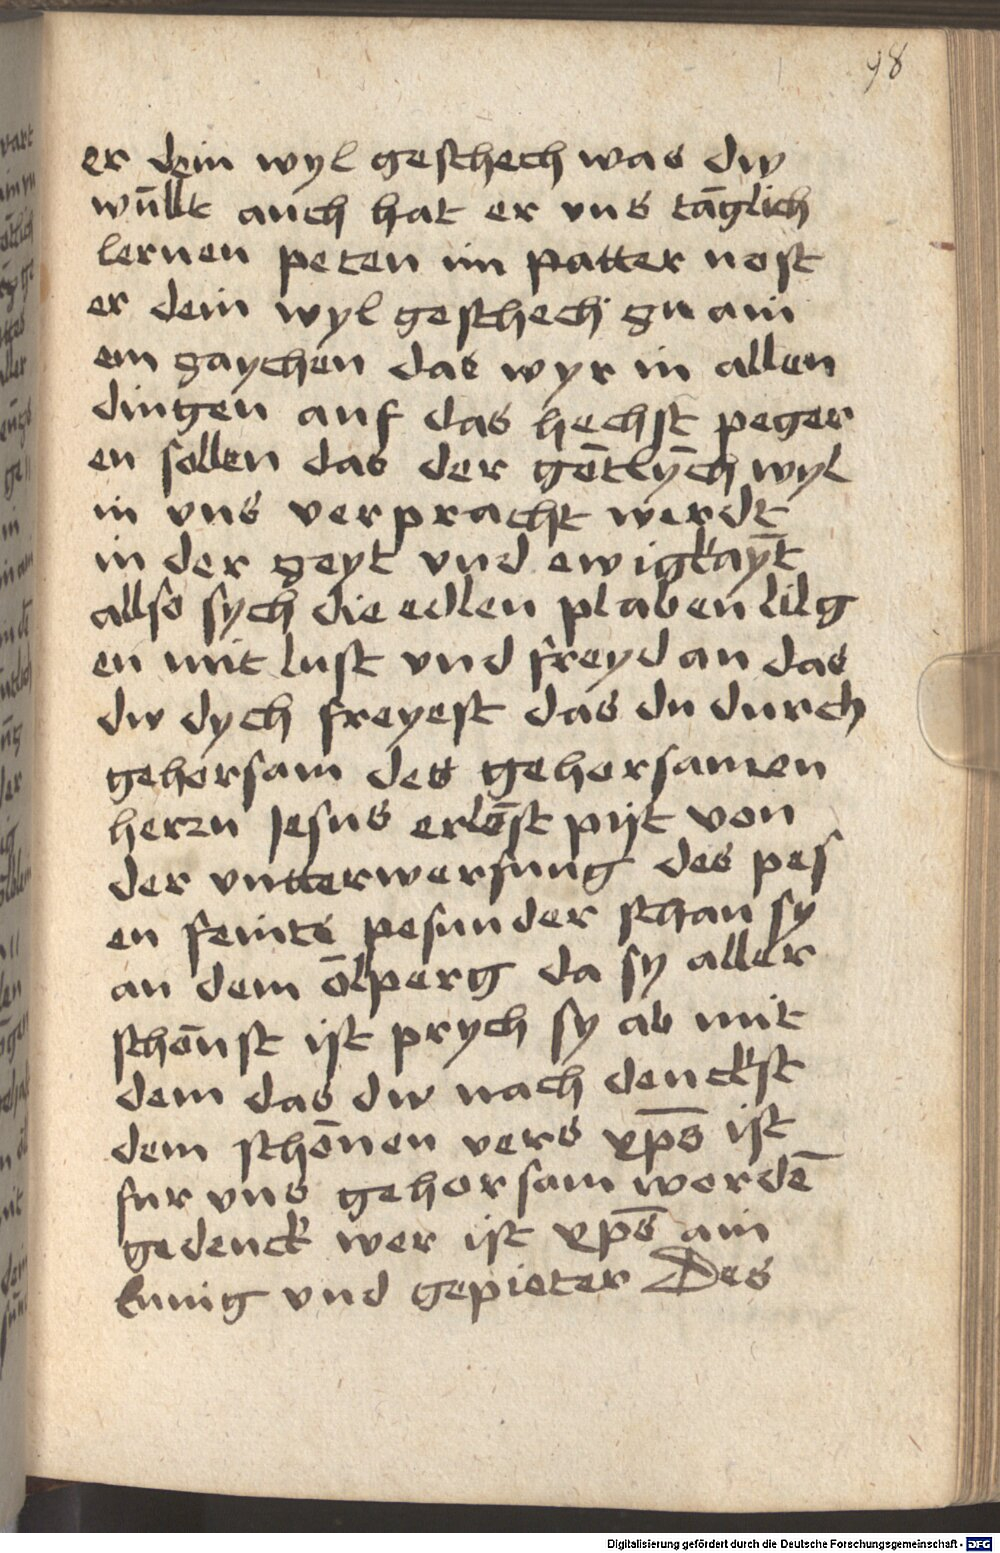 98
er dein wyl geschech was dw
wūllt auch hat er vns tāglich
lernen peten im patter nost
er dein wyl geschech zu ain
em zaychen das wyr in allen
dingen auf das hechst peger
en sollen das der gōtlych wyl
in vns verpracht werdt
in der zeyt vnd ewigkayt
allso sych die edlen plaben lilg
en mit lust vnd freyd an das
dw dych freyest das du durch
gehorsam des gehorsamen
herzn Jesus erlōst pijt von
der vntterwerfung des pes
en feints pesunder schau sy
an dem ōlperg da sy aller
schōnst ist prych sy ab mit
dem das dw nach denckst
dem schōnen vers xp̄s ist
fur vns gehorsam wordē
gedenck wer ist xp̄s ain
kunig vnd gepieter Des
Digitalisierung gefördert durch die Deutsche Forschungsgemeinschaft - DFG